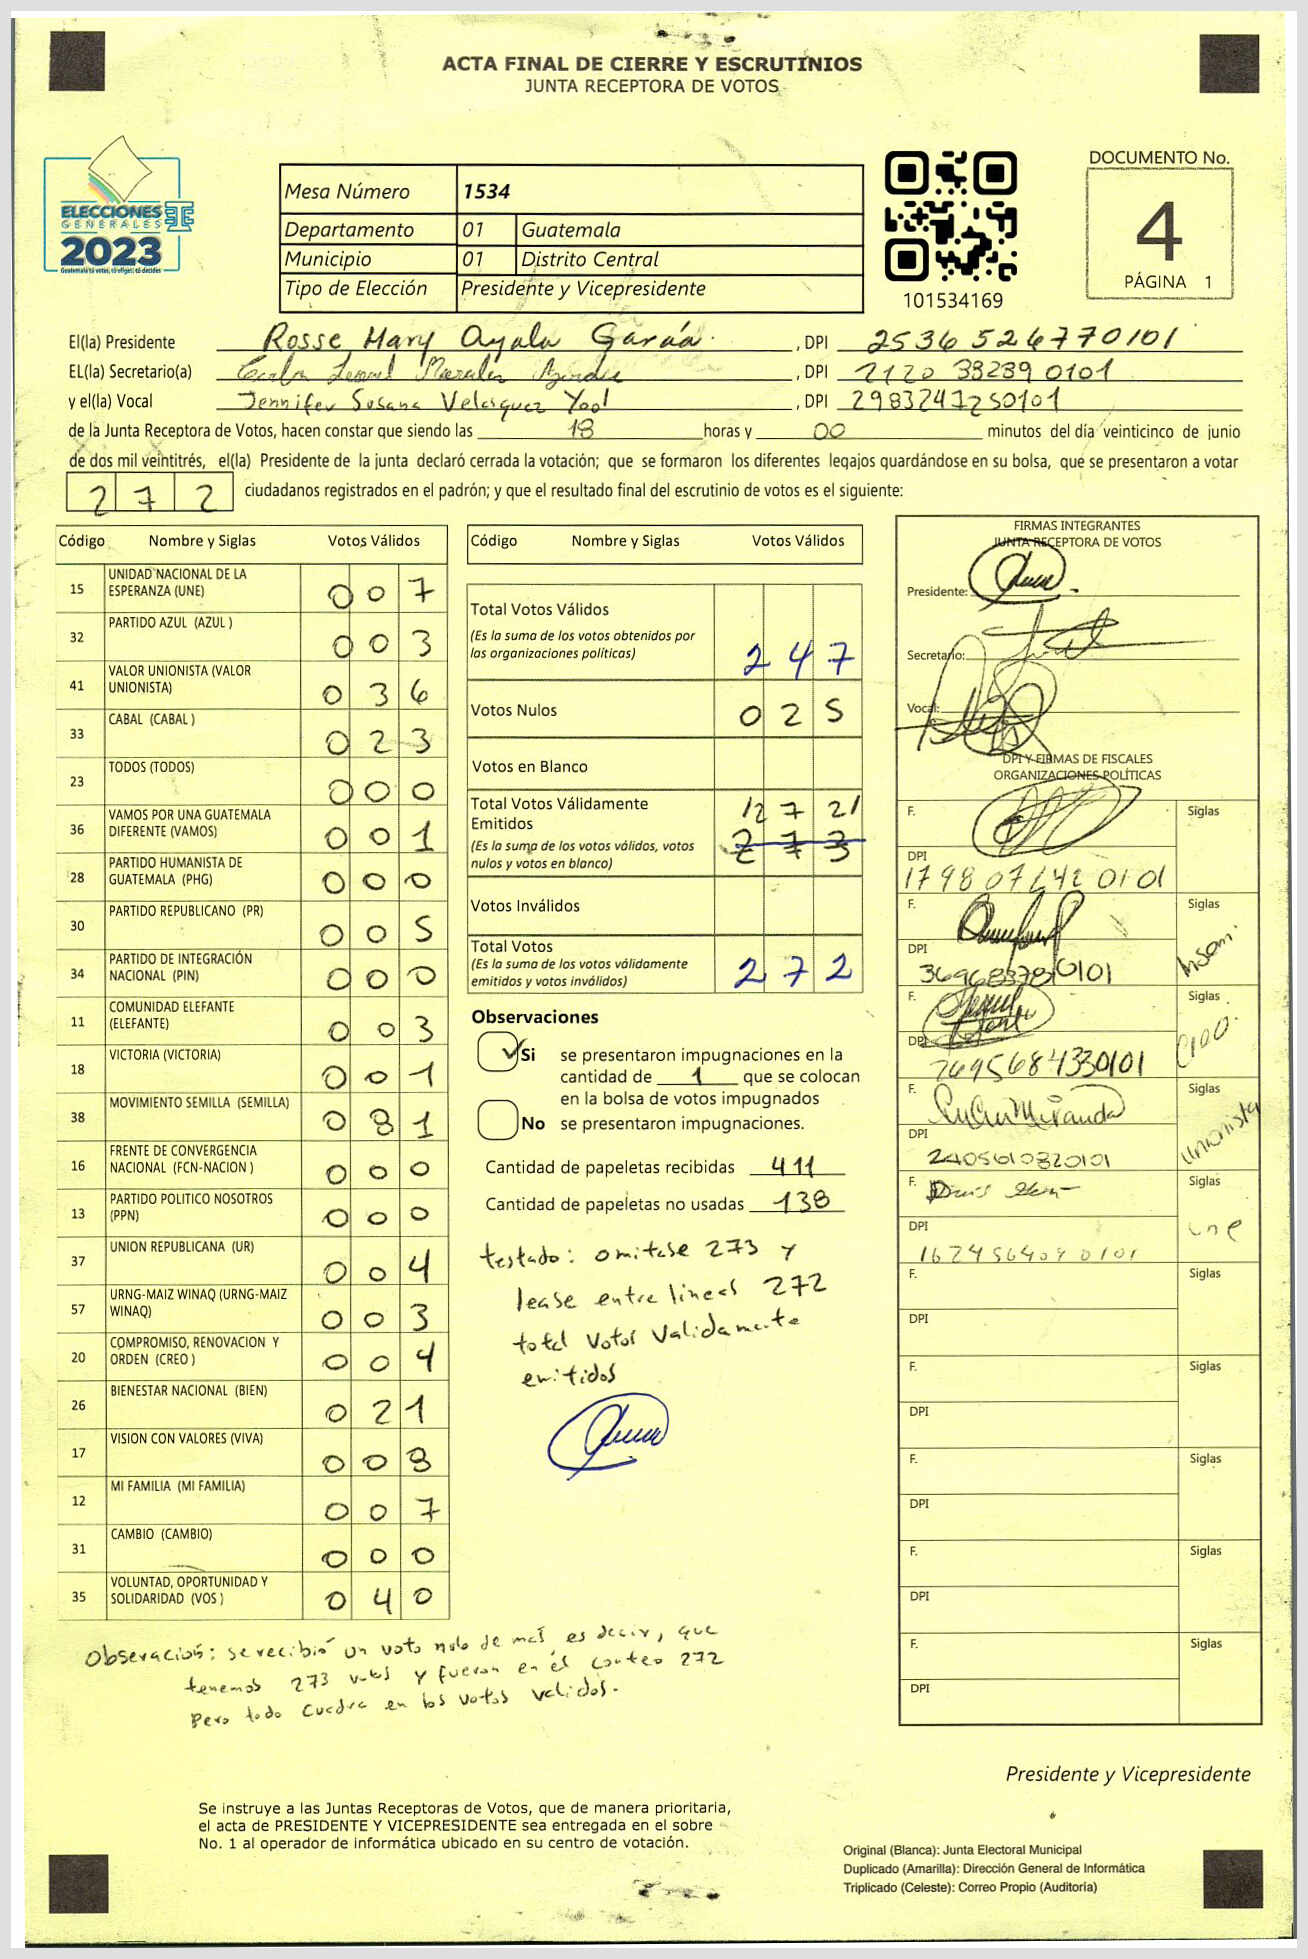 ACTA FINAL DE CIERRE Y ESCRUTINIOS
JUNTA RECEPTORA DE VOTOS
ELECCIONES
GENERALES
2023
Guatemala tú votas, tú eliges, tú decides
Mesa Número 1534
Departamento 01 Guatemala
Municipio 01 Distrito Central
Tipo de Elección Presidente y Vicepresidente
101534169
DOCUMENTO No.
4
PÁGINA 1
El(la) Presidente Rosse Mary Ayala García , DPI 2536526770101
EL(la) Secretario(a) Morales , DPI 2120 38239 0101
y el(la) Vocal Jennifer Susana Velasquez Yool , DPI 2983241250101
de la Junta Receptora de Votos, hacen constar que siendo las 18 horas y 00 minutos del día veinticinco de junio
de dos mil veintitrés, el(la) Presidente de la junta declaró cerrada la votación; que se formaron los diferentes legajos guardándose en su bolsa, que se presentaron a votar
272 ciudadanos registrados en el padrón; y que el resultado final del escrutinio de votos es el siguiente:
Código Nombre y Siglas Votos Válidos
15 UNIDAD NACIONAL DE LA ESPERANZA (UNE) 007
32 PARTIDO AZUL (AZUL ) 003
41 VALOR UNIONISTA (VALOR UNIONISTA) 036
33 CABAL (CABAL ) 023
23 TODOS (TODOS) 000
36 VAMOS POR UNA GUATEMALA DIFERENTE (VAMOS) 001
28 PARTIDO HUMANISTA DE GUATEMALA (PHG) 000
30 PARTIDO REPUBLICANO (PR) 005
34 PARTIDO DE INTEGRACIÓN NACIONAL (PIN) 000
11 COMUNIDAD ELEFANTE (ELEFANTE) 003
18 VICTORIA (VICTORIA) 001
38 MOVIMIENTO SEMILLA (SEMILLA) 081
16 FRENTE DE CONVERGENCIA NACIONAL (FCN-NACION ) 000
13 PARTIDO POLITICO NOSOTROS (PPN) 000
37 UNION REPUBLICANA (UR) 004
57 URNG-MAIZ WINAQ (URNG-MAIZ WINAQ) 003
20 COMPROMISO, RENOVACION Y ORDEN (CREO ) 004
26 BIENESTAR NACIONAL (BIEN) 021
17 VISION CON VALORES (VIVA) 008
12 MI FAMILIA (MI FAMILIA) 007
31 CAMBIO (CAMBIO) 000
35 VOLUNTAD, OPORTUNIDAD Y SOLIDARIDAD (VOS ) 040
Código Nombre y Siglas Votos Válidos
Total Votos Válidos 247
(Es la suma de los votos obtenidos por
las organizaciones políticas)
Votos Nulos 025
Votos en Blanco
Total Votos Válidamente
Emitidos 272
(Es la suma de los votos válidos, votos
nulos y votos en blanco) 273
Votos Inválidos
Total Votos
(Es la suma de los votos válidamente
emitidos y votos inválidos) 272
Observaciones
Si se presentaron impugnaciones en la
cantidad de 1 que se colocan
en la bolsa de votos impugnados
No se presentaron impugnaciones.
Cantidad de papeletas recibidas 411
Cantidad de papeletas no usadas 138
testado: omitase 273 y
lease entre lineas 272
total votos validamente
emitidos
FIRMAS INTEGRANTES
JUNTA RECEPTORA DE VOTOS
Presidente:
Secretario:
Vocal:
DPI Y FIRMAS DE FISCALES
ORGANIZACIONES POLÍTICAS
F. Siglas
DPI
F. Siglas
DPI
F. Siglas
DPI 2695684330101 Creo
F. Miranda Siglas
DPI 2405610820101 unionista
F. Siglas
DPI une
F. Siglas
DPI
F. Siglas
DPI
F. Siglas
DPI
F. Siglas
DPI
F. Siglas
DPI
Observación: se recibió un voto nulo de más es decir, que
tenemos 273 votos y fueron en el conteo 272
Pero todo cuadra en los votos validos.
Presidente y Vicepresidente
Se instruye a las Juntas Receptoras de Votos, que de manera prioritaria,
el acta de PRESIDENTE Y VICEPRESIDENTE sea entregada en el sobre
No. 1 al operador de informática ubicado en su centro de votación.
Original (Blanca): Junta Electoral Municipal
Duplicado (Amarilla): Dirección General de Informática
Triplicado (Celeste): Correo Propio (Auditoría)